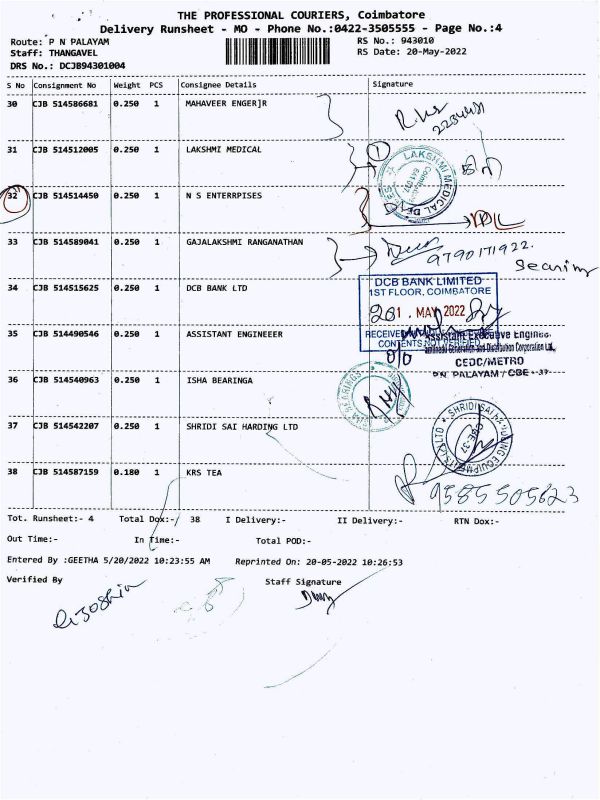 THE PROFESSIONAL COURIERS, Coimbatore
Delivery Runsheet - MO - Phone No.:0422-3505555 - Page No.:4
Route: P N PALAYAM
RS No.: 943010
Staff: THANGAVEL
RS Date: 20-May-2022
DRS No.: DCJB94301004
S No Consignment No Weight PCS Consignee Details Signature
30 CJB 514586681 0.250 1 MAHAVEER ENGER]R
31 CJB 514512005 0.250 1 LAKSHMI MEDICAL
1
LAKSHMI MEDICAL
32 CJB 514514450 0.250 1 N S ENTERRPISES
33 CJB 514589041 0.250 1 GAJALAKSHMI RANGANATHAN
9790171922.
34 CJB 514515625 0.250 1 DCB BANK LTD
DCB BANK LIMITED
1ST FLOOR, COIMBATORE
1. MAY 2022
RECEIVED
CONTENTS NOT VERIFIED
35 CJB 514490546 0.250 1 ASSISTANT ENGINEEER
Assistant Executive Engineer
Generation and Distribution Corporation Ltd.
CEDC/METRO
P.N. PALAYAM / CBE - 37
36 CJB 514540963 0.250 1 ISHA BEARINGA
37 CJB 514542207 0.250 1 SHRIDI SAI HARDING LTD
SHRIDI SAI
CBE-37
38 CJB 514587159 0.180 1 KRS TEA
9585505623
Tot. Runsheet:- 4 Total Dox:- 38 I Delivery:- II Delivery:- RTN Dox:-
Out Time:- In Time:- Total POD:-
Entered By :GEETHA 5/20/2022 10:23:55 AM Reprinted On: 20-05-2022 10:26:53
Verified By Staff Signature